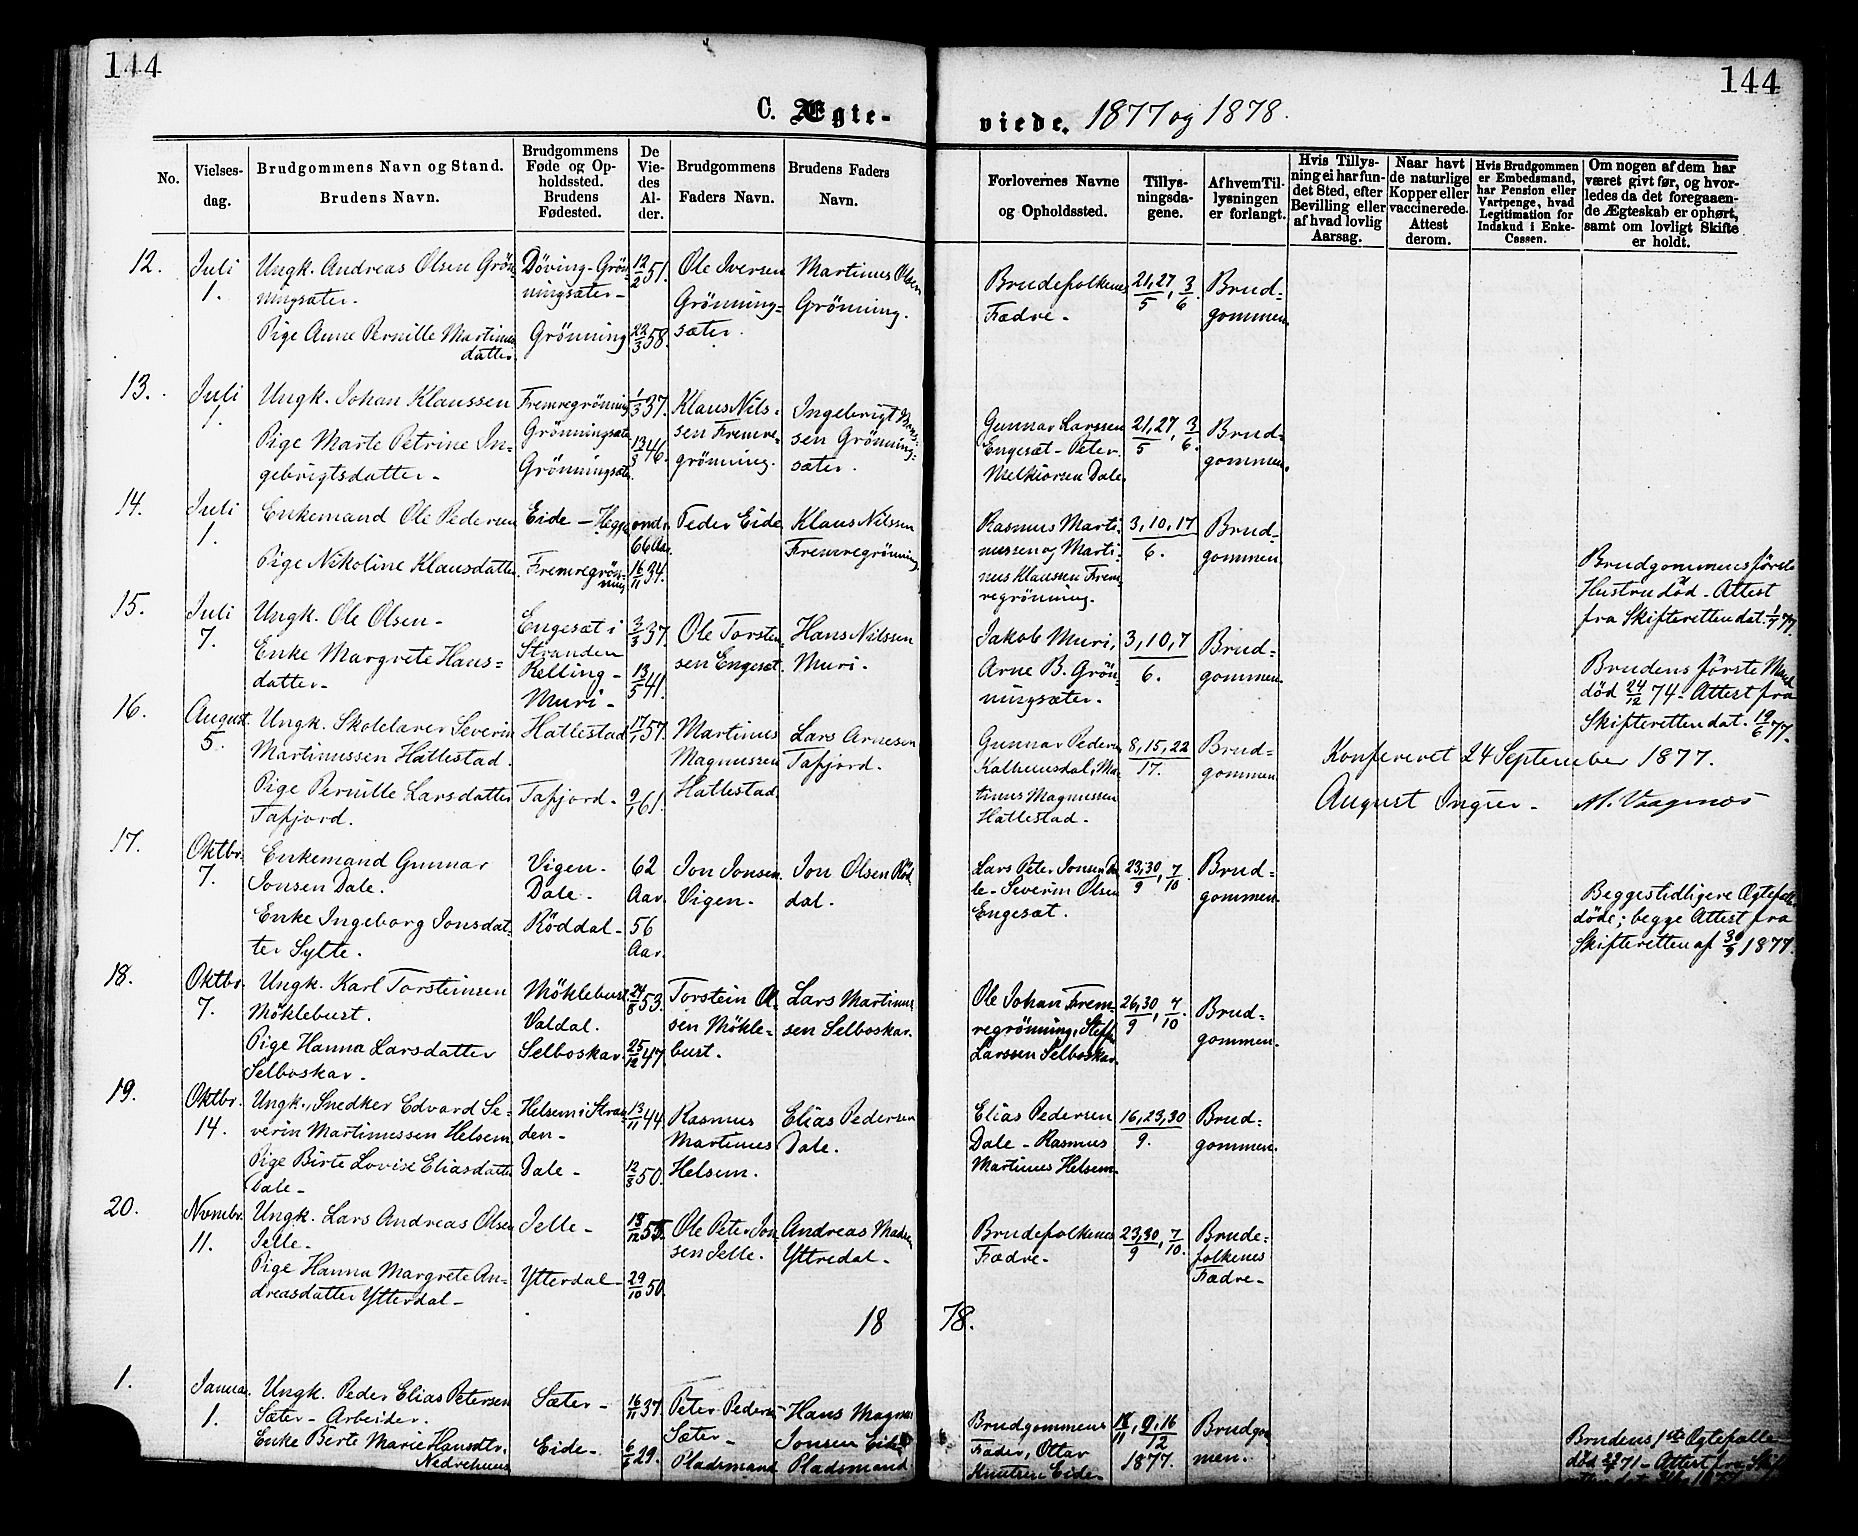 144
144
C. Ægte-
viede. 1877 og 1878.
No.
Vielses-
dag.
Brudgommens Navn og Stand.
Brudens Navn.
Brudgommens
Føde og Op-
holdssted.
Brudens
Fødested.
De
Vie-
des
Al-
der.
Brudgommens
Faders Navn.
Brudens Faders
Navn.
Forlovernes Navne
og Opholdssted.
Tillys-
ningsda-
gene.
Af hvem Til-
lysningen
er forlangt.
Hvis Tillys-
ning ei har fun-
det Sted, efter
Bevilling eller
af hvad lovlig
Aarsag.
Naar havt
de naturlige
Kopper eller
vaccinerede.
Attest
derom.
Hvis Brudgommen
er Embedsmand,
har Pension eller
Vartpenge, hvad
Legitimation for
Indskud i Enke-
Cassen.
Om nogen af dem har
været givt før, og hvor-
ledes da det foregaaen-
de Ægteskab er ophørt,
samt om lovligt Skifte
er holdt.
12.
Juli
1.
Ungk. Andreas Olsen Grön-
ningsæter.
Pige Anne Pernille Martinus
datter.
Döving-Grön-
ningsæter-
Grönning
12/2 51.
22/3 58.
Ole Iversen
Grönning-
sæter.
Martinus Olsen
Grönning.
Brudefolkenes
Fædre-
21,27/5, 3/6
Brud-
gommen.
13.
Juli
1.
Ungk. Johan Klaussen
Pige Marte Petrine In-
gebrigtsdatter-
Fremregrönning
Grönningsæte
Grönningsæte
1/3 37.
13/3 46.
Klaus Nils-
sen Fremre-
grönning.
Ingebrigt
sen Grönning-
sæter.
Gunnar Larssen
Engesæt-Peter
Melkiorsen Dale.
21,27/5, 3/6.
Brud-
gommen.
14.
Juli
1.
Enkemand Ole Pedersen
Pige Nikoline Klausdatter.
Eide-
Fremregrön-
ning
66 Aar.
16/11 34.
Peder Eide
Klaus Nilssen
Fremregrönning
Rasmus Marti-
nussen og Marti-
nus Klaussen Frem-
regrönning.
3,10,17/6.
Brud-
gommen
Brudgommens förste
Hustru död-Attest
fra Skifteretten dat. 1/7 77.
15.
Juli
7.
Ungk. Ole Olsen-
Enke Margrete Hans-
datter-
Engesæt i
Stranden
Relling-
Muri-
3/3 37.
13/5 41.
Ole Torsten-
sen Engesæt.
Hans Nilssen
Muri.
Jakob Muri,
Arne B. Grön-
ningsæter.
3,10,7/6.
Brud-
gommen.
Brudens förste Mand
död 24/12 74-Attest fra
Skifteretten dat. 19/6 77.
16.
August
5.
Ungk. Skolelærer Severin
Martinussen Hattestad.
Pige Pernille Larsdatter
Tafjord.
Hattestad
Tafjord-
17/1 57.
9/1 61.
Martinus
Magnussen
Hattestad.
Lars Arnesen
Tafjord.
Gunnar Pedersen
Kalhusdal, Ma-
tinus Magnussen
Hattestad-
8,15,22/17.
Brud-
gommen
Konfereret 24 September 1877.
August
M. Vaagenæs
17.
Oktbr.
7.
Enkemand Gunnar
Jonsen Dale.
Enke Ingeborg Jonsdat-
ter Sylte.
Vigen-
Dale-
Röddal-
62
Aar.
56
Aar.
Jon Jonsen
Vigen-
Jon Olsen Röd
dal.
Lars Peter Jonsen Da
le-Severin Olsen
Engesæt.
23,30/9, 7/10.
Brud-
gommen.
Begges tidligere Ægtefæller
döde; begge Attest fra
Skifteretten af 30/9 1877.
18.
Oktbr.
7.
Ungk. Karl Torsteinsen
Möklebust.
Pige Hanna Larsdatter
Selboskar-
Möklebust
Valdal.
Selboskar.
24/8 53.
25/12 47.
Torstein Ol-
sen Mökle-
bust.
Lars Martinus
sen Selboskar.
Ole Johan Frem-
regrönning, Steffen
Larssen Selboskar.
26,30/9, 7/10.
Brud-
gommen.
19.
Oktbr.
14.
Ungk., Snedker Edvard Se-
verin Martinussen Helsem.
Pige Birte Lovise Eliasdatter
Dale-
Helsem i Stran
den-
Dale-
13/11 44
12/3 50.
Rasmus
Martinus
Helsem.
Elias Pedersen
Dale.
Elias Pedersen
Dale-Rasmus
Martinus Helsem-
16,23,30/9.
Brud-
gommen.
20.
Novmbr.
11.
Ungk. Lars Andreas Olsen
Jelle-
Pige Hanna Margrete An-
dreasdatter Ytterdal-
Jelle-
Ytterdal-
18/12 55.
29/10 50.
Ole Peter Jon
sen Jelle.
Andreas Madsen
Yttredal-
Brudefolkenes
Fædre-
23,30/9, 7/10.
Brude-
folkenes
Fædre-
18 78.
1.
Januar.
1.
Ungk. Peder Elias Petersen
Sæter-Arbeider.
Enke Berte Marie Hansdtr.
Nedrehuus
Sæter-
Eide-
16/11 37.
6/6 29.
Peter Pedersen
Sæter-
Pladsmand
Hans Magnus
Jonsen Eide
Pladsmand
Brudgommens
Fader, Ottar
Knutsen Eide-
18/11, 9,16/12
1877.
Brudgom
men.
Brudens 1ste Ægtefælle
död 71-Attest fra Skif